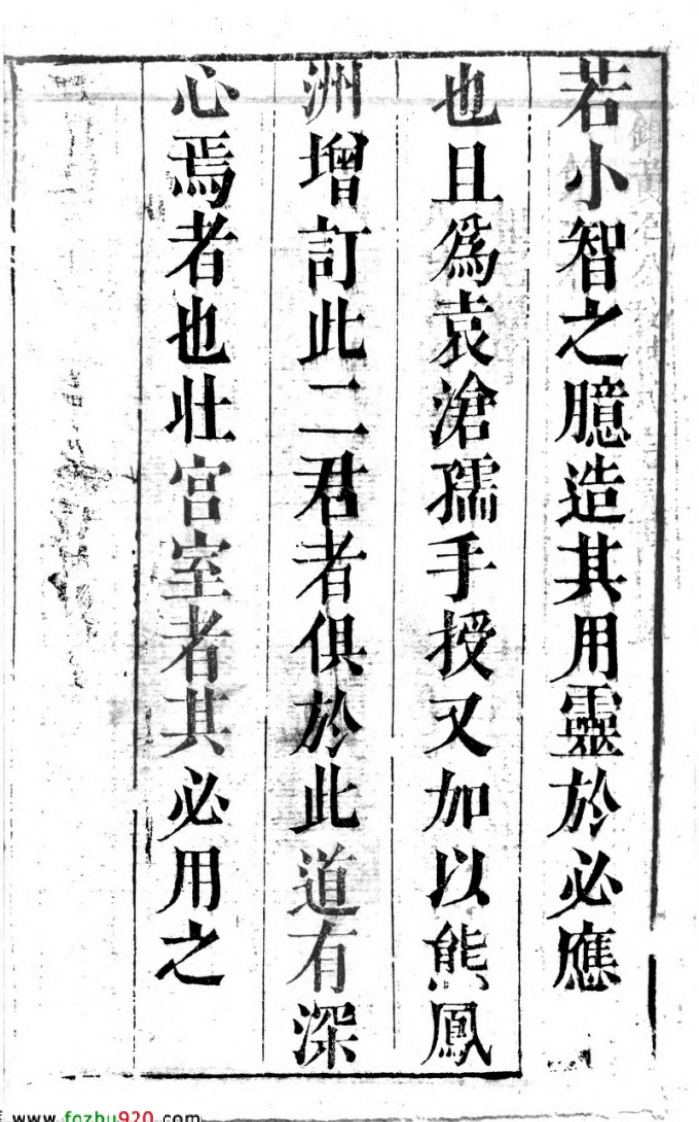 若小智之臆造其用靈於必應
也且爲袁滄孺手授又加以熊鳳
洲增訂此二君者俱於此道有深
心焉者也壯宫室者其必用之
www.fozhu920.com